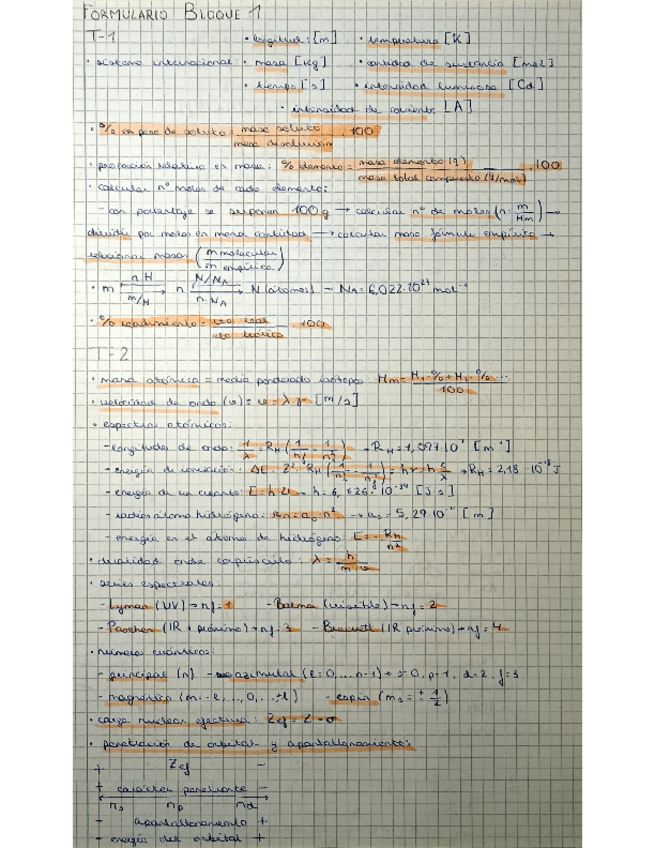 FORMULARIO BLOQUE 1
T-1
· longitud: [m] · temperatura [K]
· sistema internacional: · masa [Kg] · cantidad de sustancia [mol]
· tiempo [s] · intensidad luminosa [Cd]
· intensidad de corriente [A]
· % en peso de soluto = masa soluto / masa disolución · 100
· proporción relativa en masa: % elemento = masa elemento (g) / masa total compuesto (g/mol) · 100
· calcular nº moles de cada elemento:
- con porcentaje se suponen 100g → calcular nº de moles (n = m/Mm) →
dividir por moles en menor cantidad → calcular masa fórmula empírica →
relacionar masas (m molecular / m empírica)
· m n·M m/M n N/NA n·NA N (átomos) – NA = 6,022·10²³ mol⁻¹
· % rendimiento = real / teórico · 100
T-2
· masa atómica = media ponderada isótopos Mm = M₁·% + M₂·% ... / 100
· velocidad de onda (v) = v = λ·ν [m/s]
· espectros atómicos:
- longitudes de onda: 1/λ = RH (1/n₁² - 1/n₂²) → RH = 1,097·10⁷ [m⁻¹]
- energía de ionización: ΔE = Z²·RH (1/n₁² - 1/n₂²) = hν = h c/λ → RH = 2,18·10⁻¹⁸ J
- energía de un cuanto: E = h·ν → h = 6,626·10⁻³⁴ [J·s]
- radios átomo hidrógeno: Rn = a₀·n² → a₀ = 5,29·10⁻¹¹ [m]
- energía en el átomo de hidrógeno: E = - RH/n²
· dualidad onda corpúsculo: λ = h / m·v
· series espectrales:
- Lyman (UV) → nf = 1 - Balmer (visible) → nf = 2
- Paschen (IR + próximo) → nf = 3 - Brackett (IR próximo) → nf = 4
· números cuánticos:
- principal (n) - azimutal (l = 0,... n-1) → s=0, p=1, d=2, f=3
- magnético (m = -l, ..., 0, ..., +l) - espín (ms = ± 1/2)
· carga nuclear efectiva: Zef = Z - σ
· penetración de orbital y apantallamiento:
+ Zef -
+ carácter penetrante -
ns np nd
- apantallamiento +
- energía del orbital +